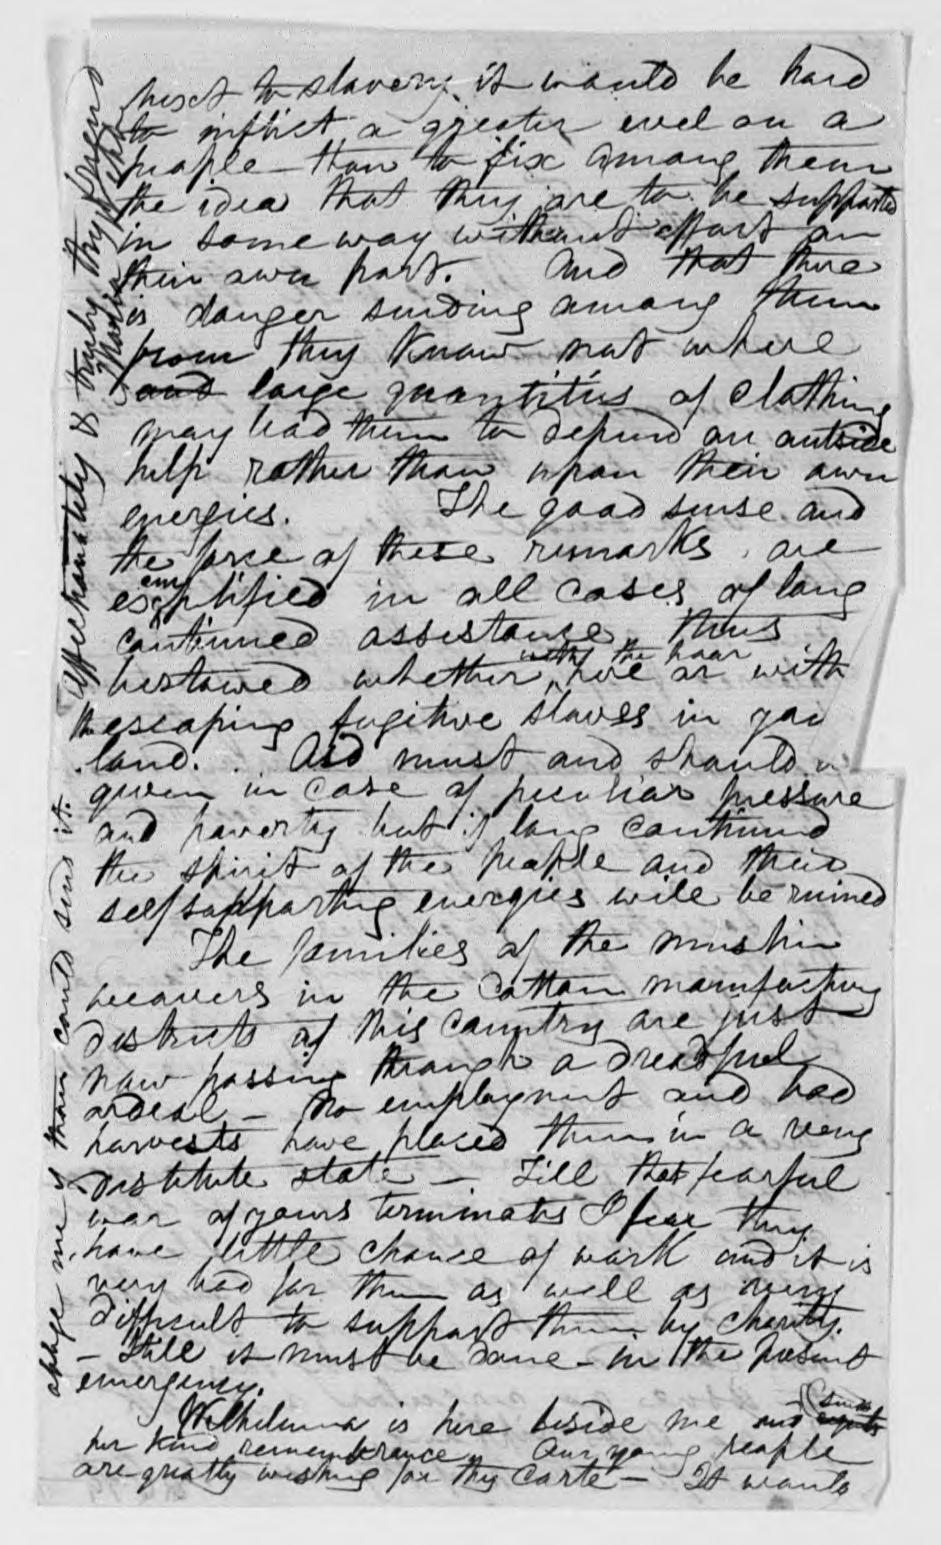 next to slavery it would be hard
to inflict a greater evel on a
people than to fix among them
the idea that they are to be supported
in some way without effort on
their own part. And that there
is danger sending among them
from they know not where
and large quantities of clothing
may lead them to depend on outside
help rather than upon their own
energies. The good sense and
the force of these remarks are
exemplified in all cases of long
continued assistance thus
bestowed whether with the poor here or with
the escaping fugitive slaves in your
land. Aid must and should
given in case of peculiar pressure
and poverty but if long continued
the spirit of the people and their
self supporting energies will be ruined
The families of the muslin
weavers in the Cotton manufacturing
districts of this Country are just
now passing through a dreadful
ordeal - No employment and bad
harvests have placed them in a very
destitute state - Till that fearful
war of yours terminates I fear they
have little chance of work and it is
very bad for them as well as very
difficult to support them by charity.
- Still it must be done - in the present
emergency.
Wilhelmina is here beside me and sends
her kind remembrance. Our young people
are greatly wishing for thy Carte - It would
oblige me if thou could send it.
Affectionately & truly thy friend